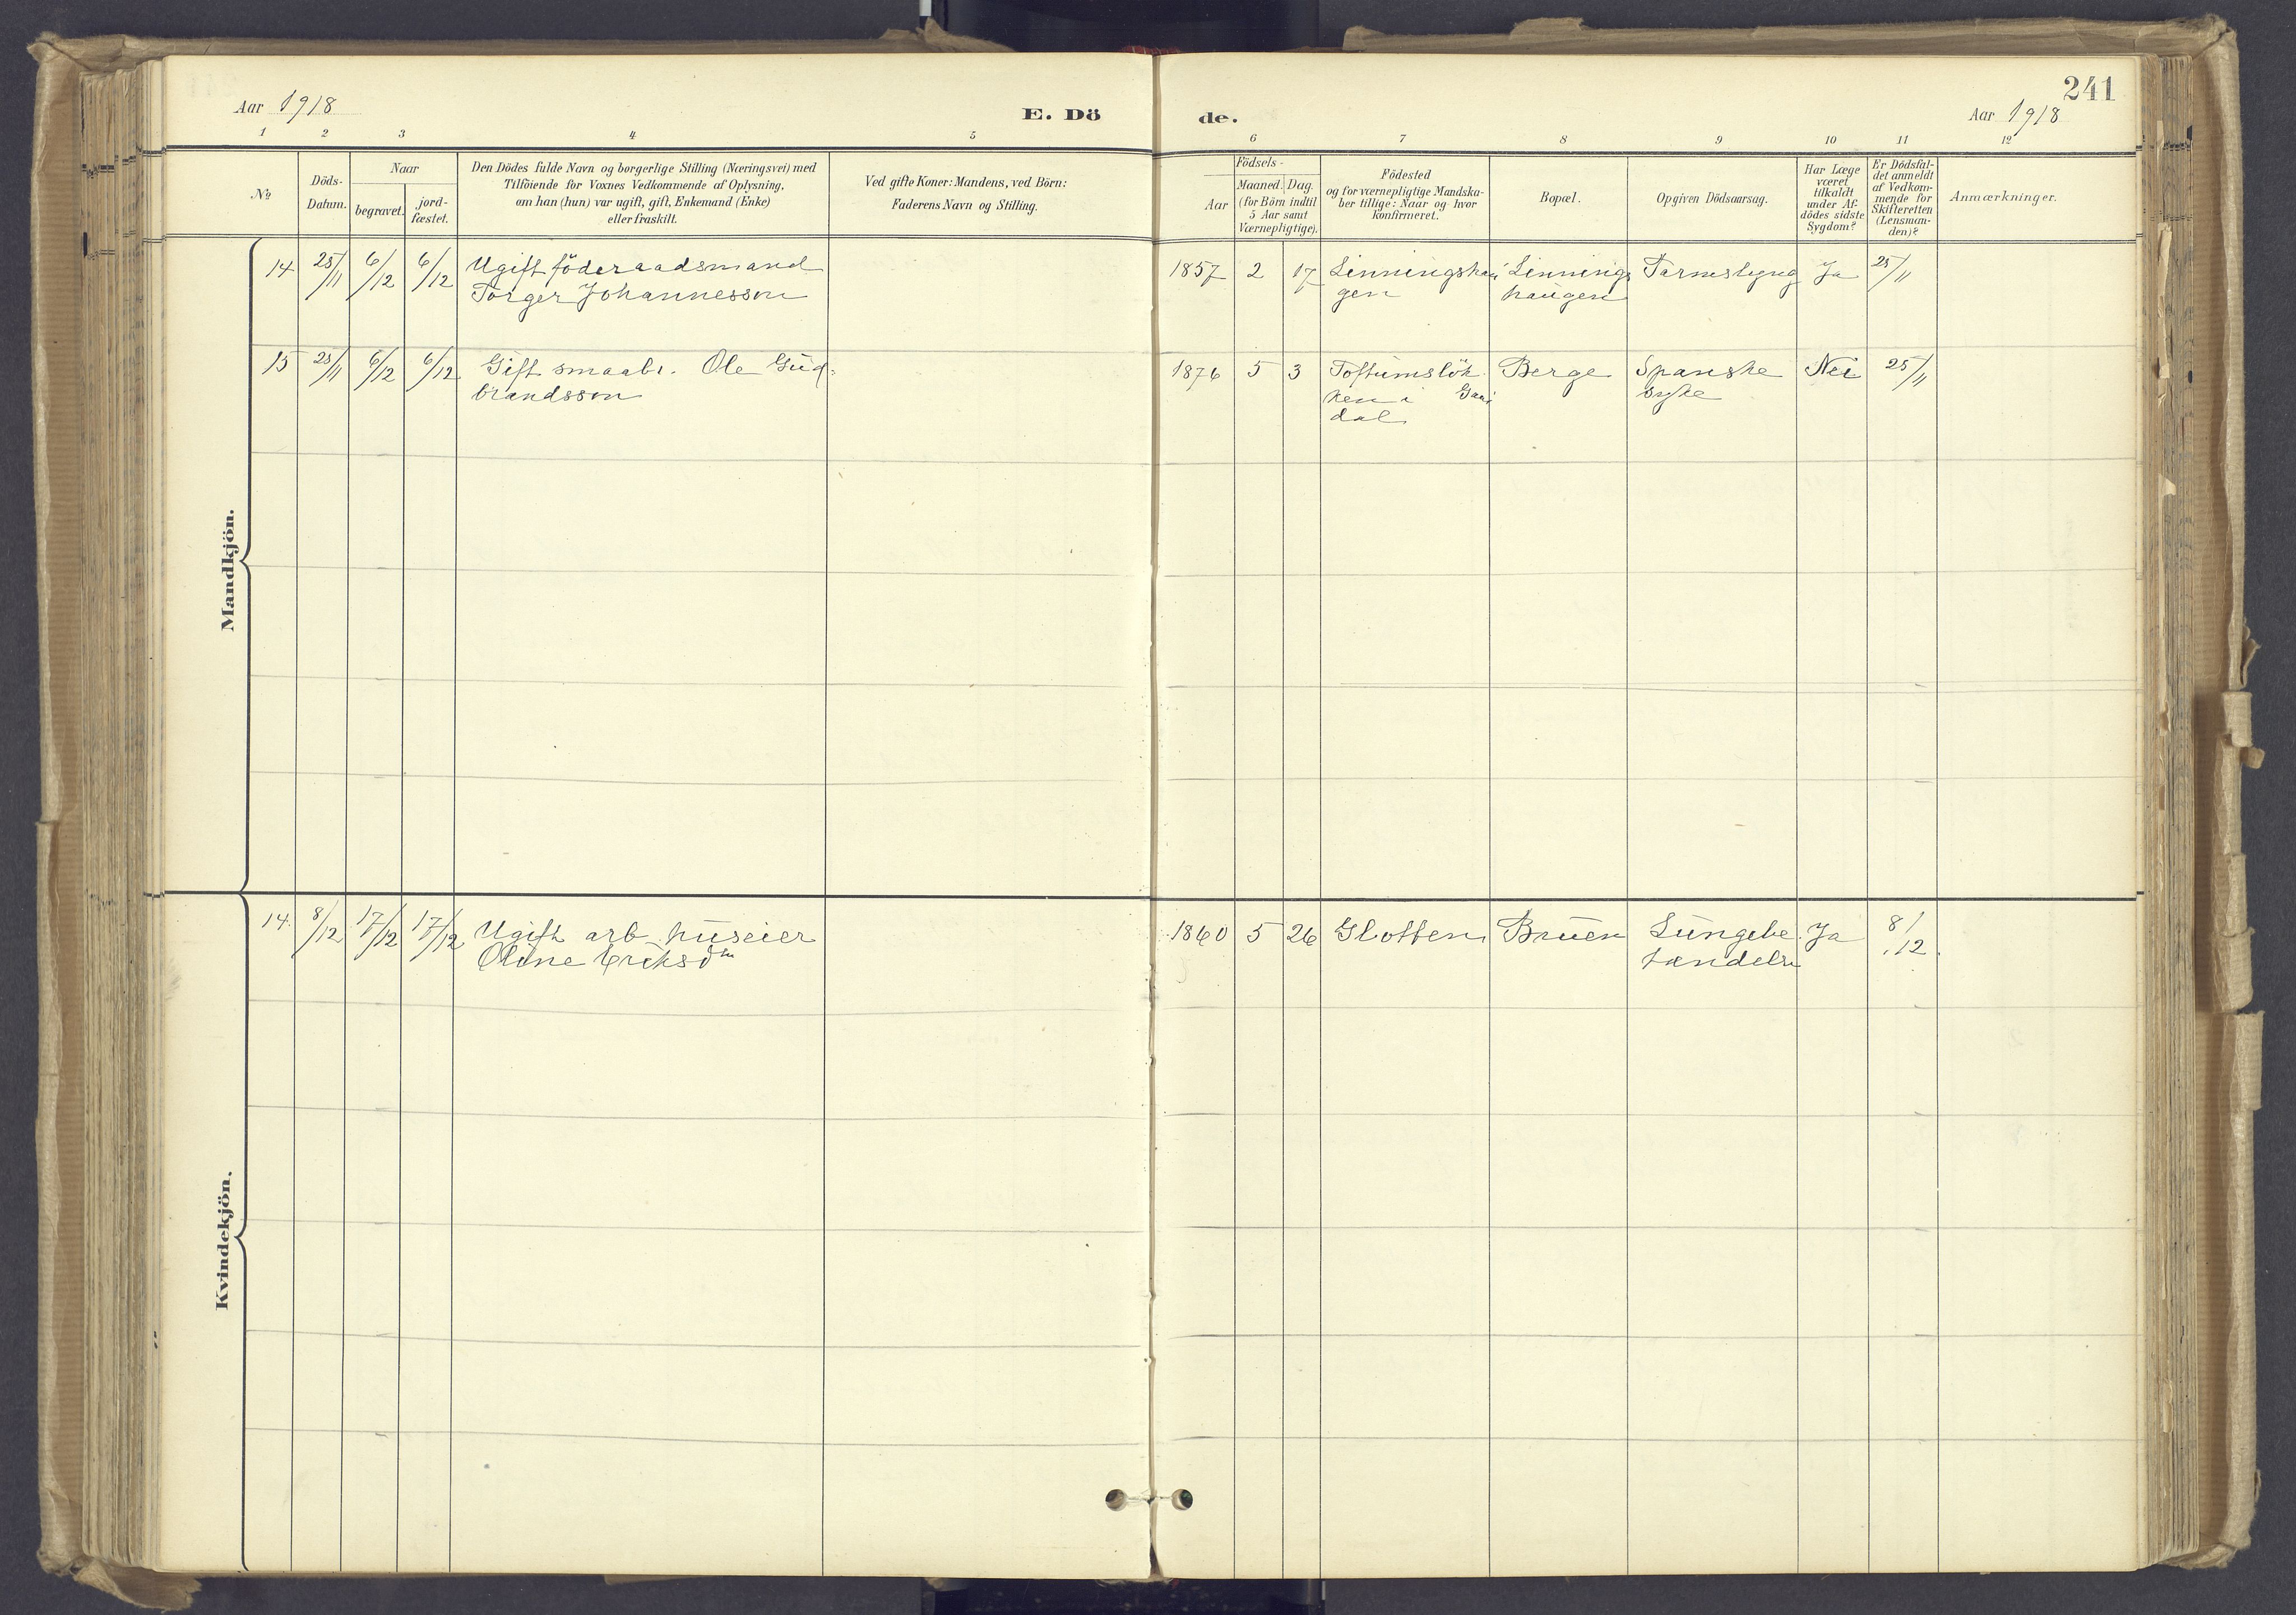 241
Aar 1918
E. Dö
de.
Aar 1918
1 2 3 4 5 6 7 8 9 10 11 12
No
Döds-
Datum.
Naar
begravet.
jord-
fæstet.
Den Dödes fulde Navn og borgerlige Stilling (Næringsvei) med
Tilföiende for Voxnes Vedkommende af Oplysning,
om han (hun) var ugift, gift, Enkemand (Enke)
eller fraskilt.
Ved gifte Koner: Mandens, ved Börn:
Faderens Navn og Stilling.
Födsels-
Aar
Maaned. Dag.
(for Börn indtil
5 Aar samt
Værnepligtige).
Födested
og for værnepligtige Mandska-
ber tillige: Naar og hvor
konfirmeret.
Bopæl.
Opgiven Dödsaarsag.
Har Læge
været
tilkaldt
under Af-
dödes sidste
Sygdom?
Er Dödsfal-
det anmeldt
af Vedkom-
mende for
Skifteretten
(Lensman-
den)?
Anmærkninger.
Mandkjön.
14 25/11 6/12 6/12 Ugift föderaadsmand
Torger Johannesson
1857 2 17 Linningshau
gen
Linnings
haugen
Tarmslyng Ja 25/11
15 25/11 6/12 6/12 Gift smaabr. Ole Gud-
brandsson
1876 5 3 Toftumslök
ken i
dal
Berge
Spanske
syke
Nei 25/11
Kvindekjön.
14. 8/12 17/12 17/12 Ugift arb. huseier
Oline Eriksdtr
1860 5 26 Glotten Bruen Lungebe
tændelse
Ja 8/12.